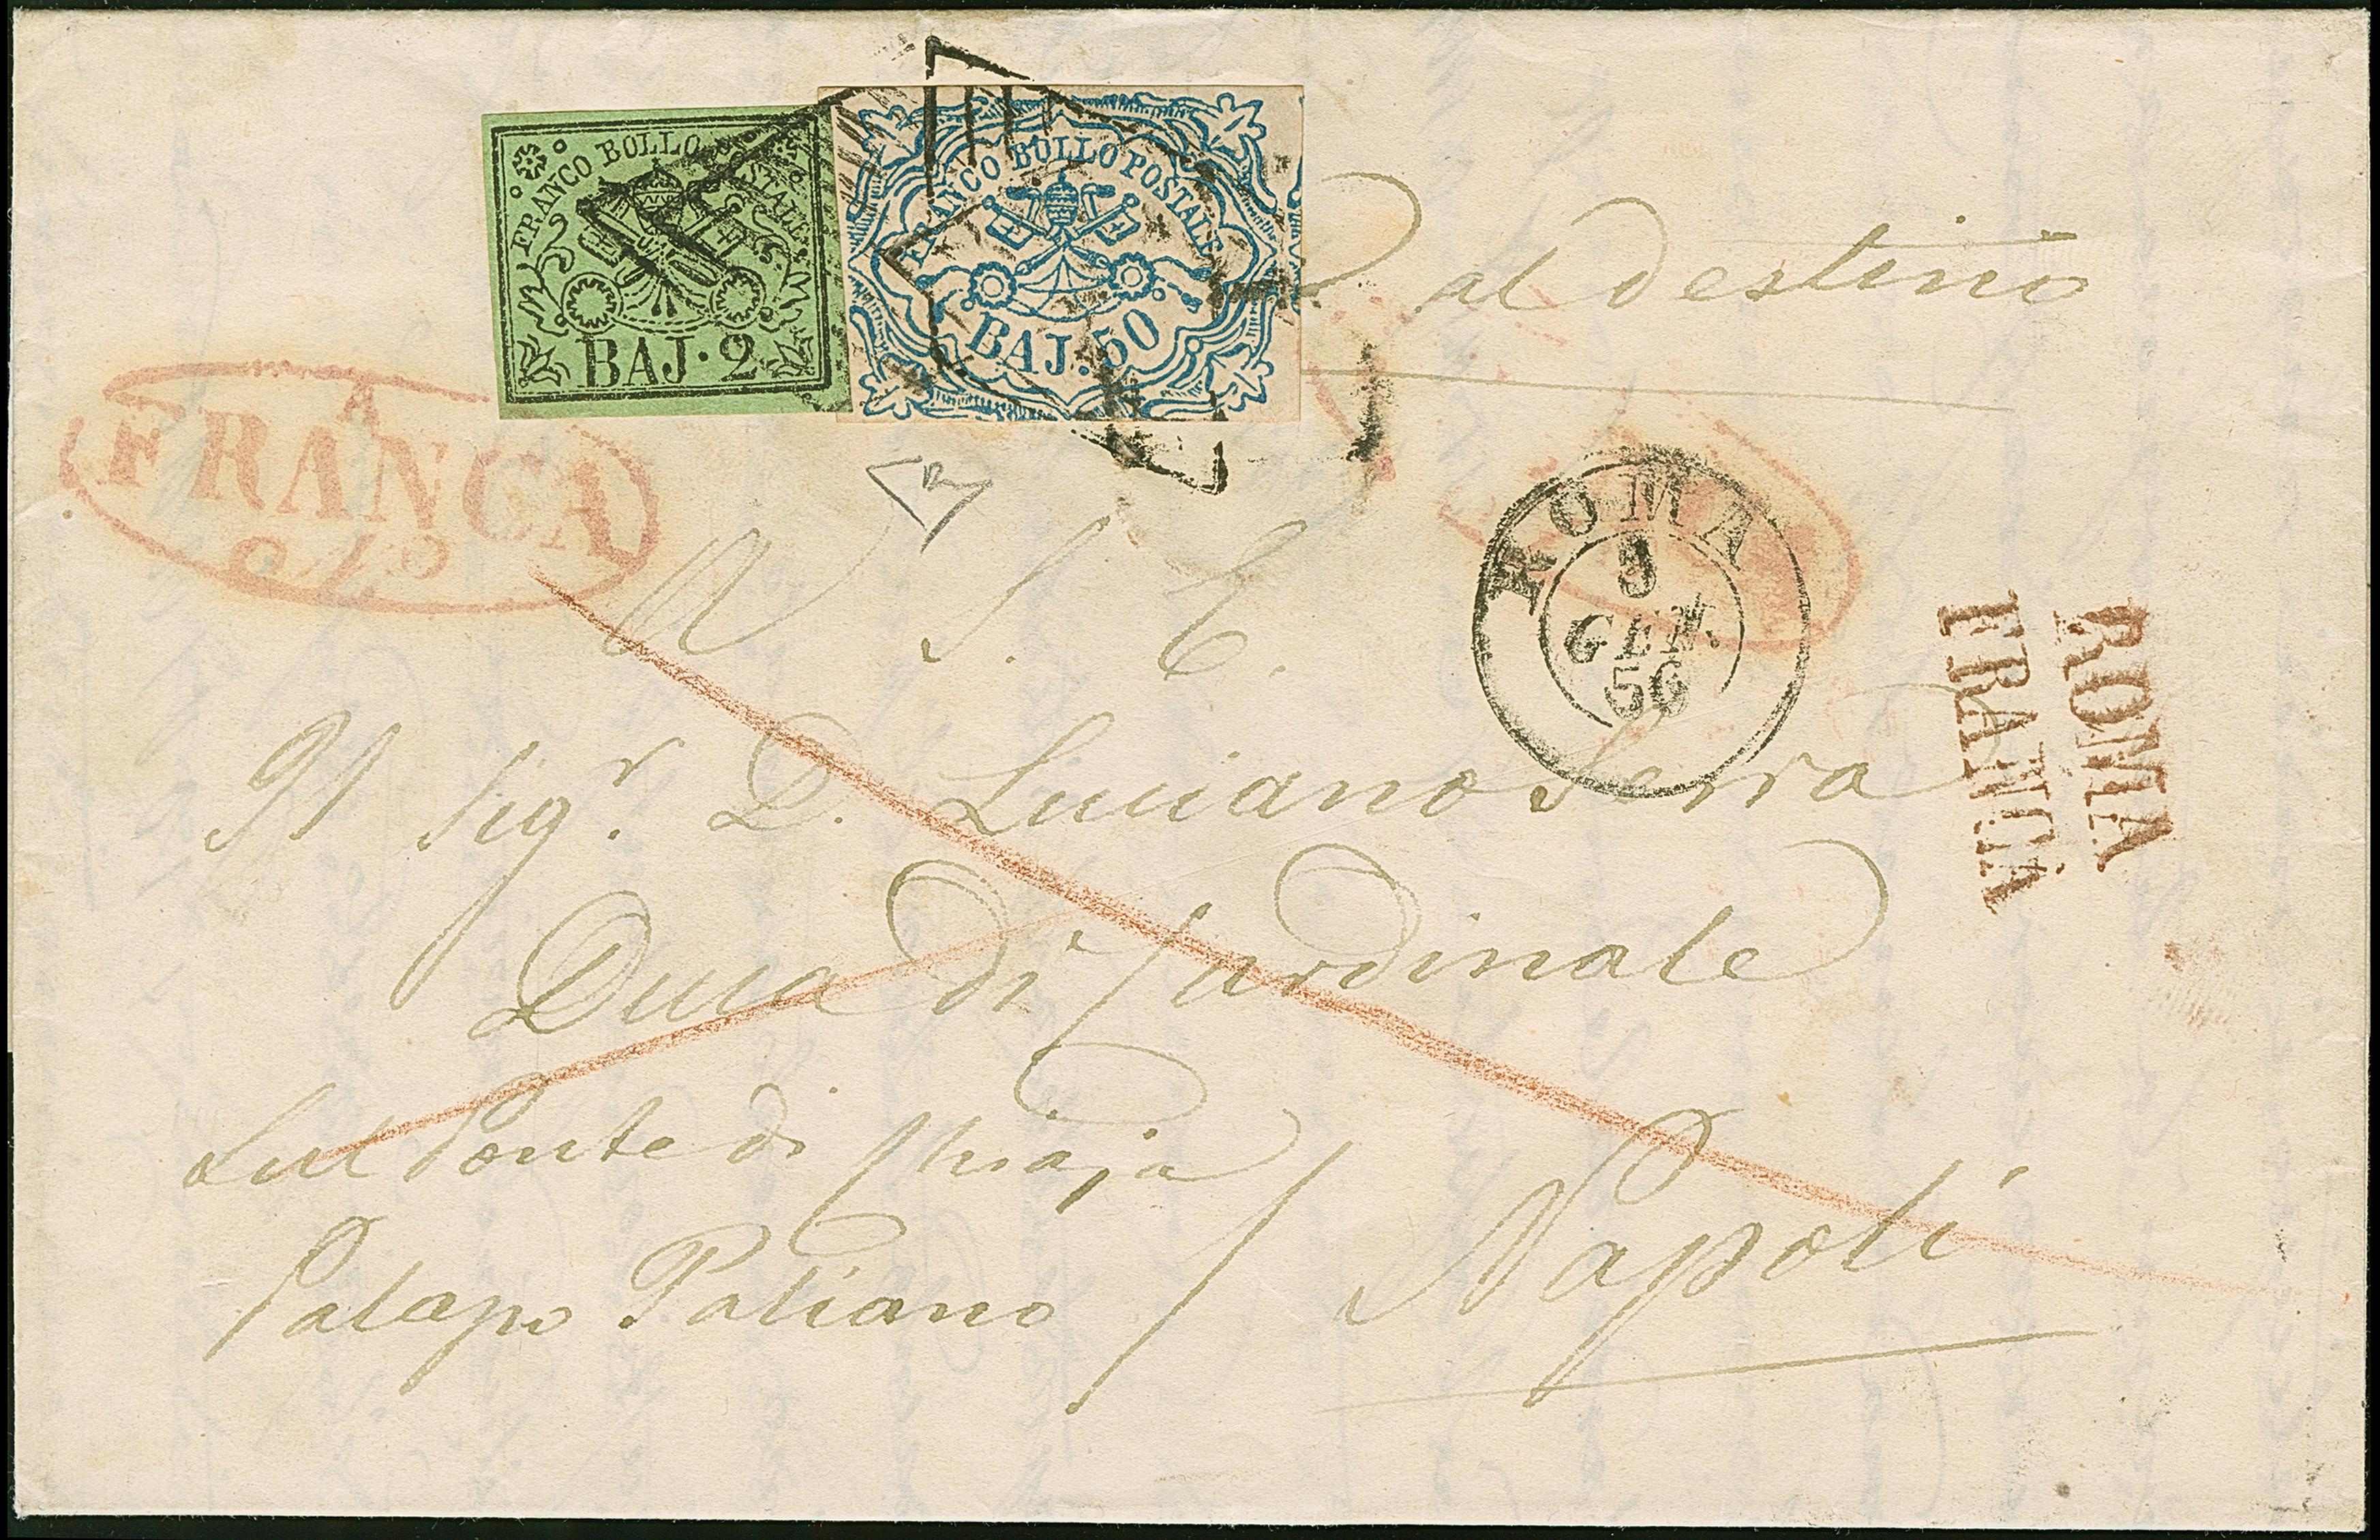 FRANCO BOLLO POSTALE
BAJ. 2
FRANCO BOLLO POSTALE
BAJ. 50
al destino
A
FRANCA
ROMA
9
GEN.
56
ROMA
FRANCA
A S. E.
Il Sigr. D. Luciano Serra
Duca di Cardinale
Sul Ponte di Chiaja
Palazzo Paliano
Napoli